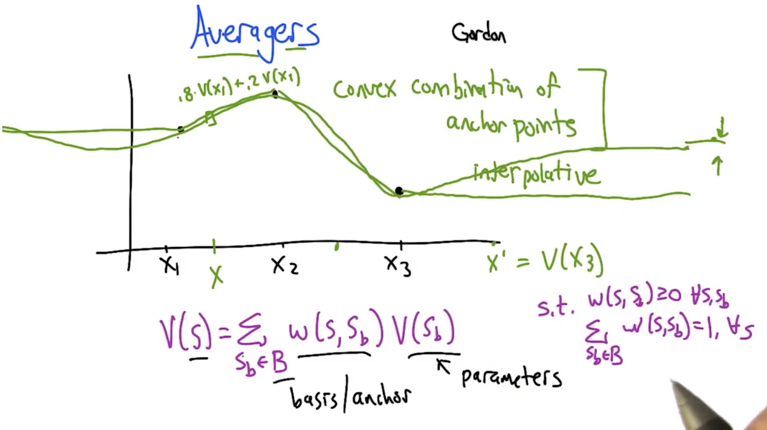 Averagers
Gordon
.8·V(x₁)+.2V(x₁)
convex combination of
anchor points
interpolative
x₁ x x₂ x₃ x' = V(x₃)
V(s) = Σ w(s,s_b) V(s_b)
s_b∈B
basis/anchor
parameters
s.t. w(s,s_b)≥0 ∀s,s_b
Σ w(s,s_b)=1, ∀s
s_b∈B